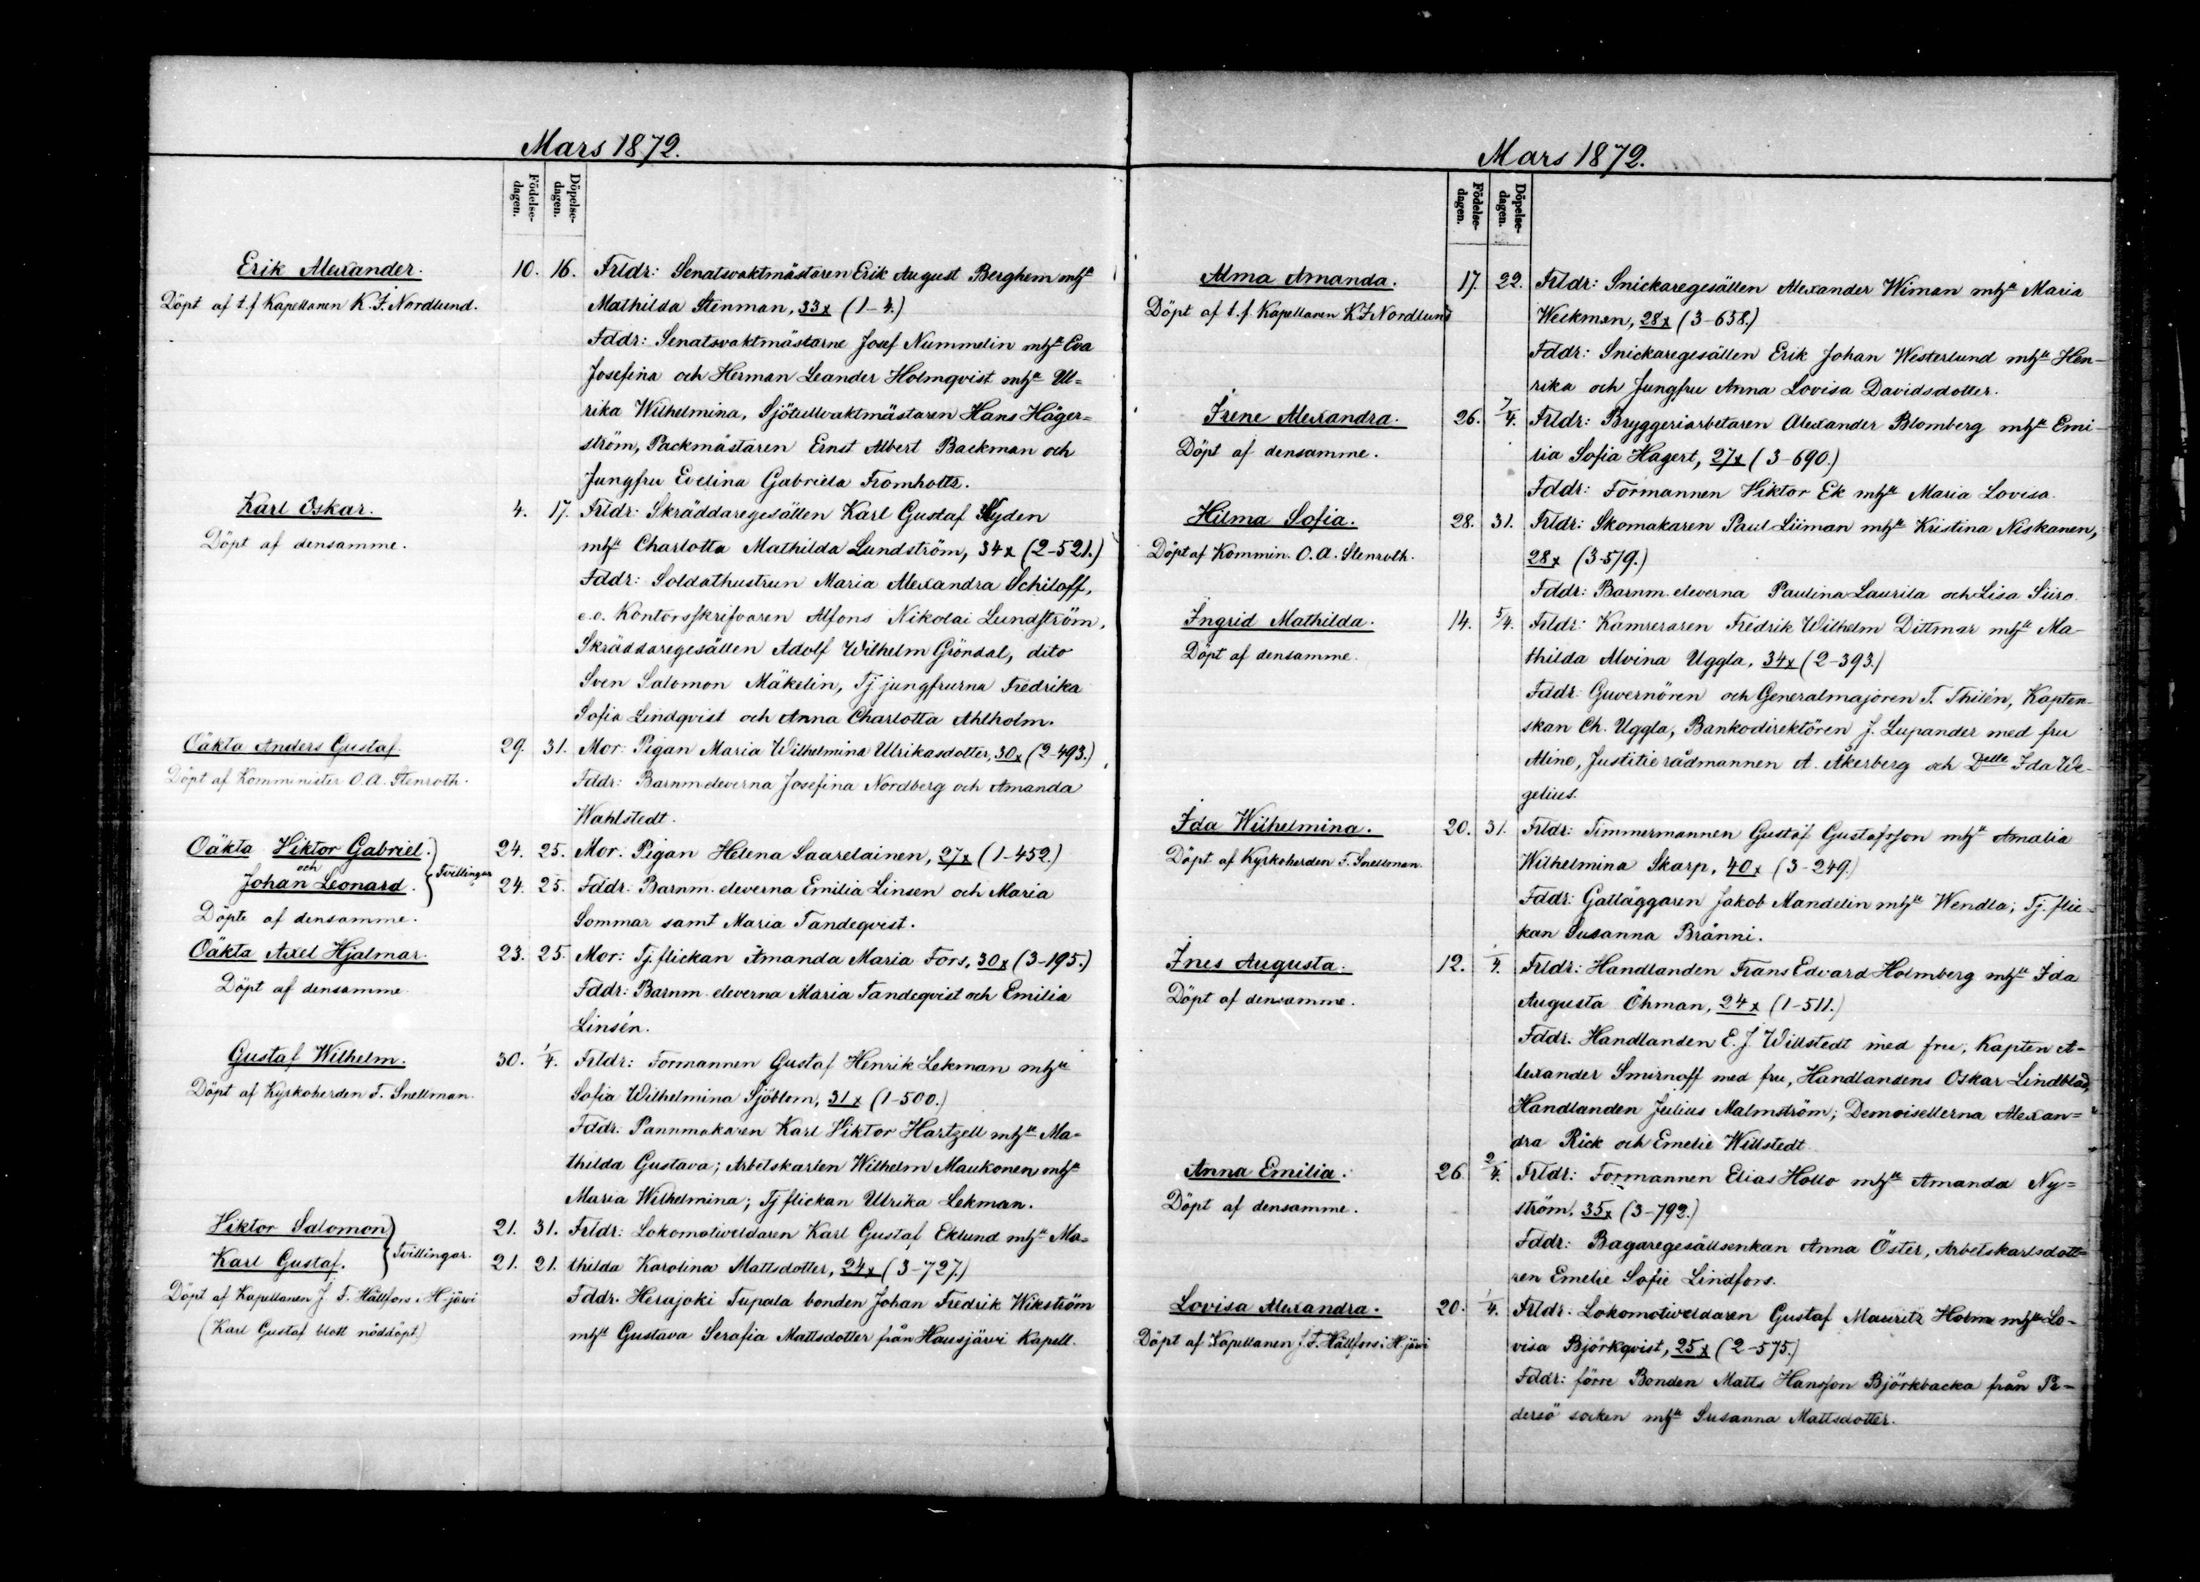 Mars 1872.
Födelse-
dagen.
Döpelse-
dagen.
Erik Alexander. 10. 16. Frldr: Senatsvaktmästaren Erik August Berghem mhu
Döpt af t.f Kapellanen K.F. Nordlund. Mathilda Stenman, 33x (1-4.)
Fddr: Senatsvaktmästarne Josef Nummelin mhu Eva
Josefina och Herman Leander Holmqvist mhu Ul=
rika Wilhelmina, Sjötullvaktmästaren Hans Häger=
ström, Packmästaren Ernst Albert Backman och
Jungfru Evelina Gabriela Fromholtz.
Karl Oskar. 4. 17. Frldr: Skräddaregesällen Karl Gustaf Nyden
Döpt af densamme. mhu Charlotta Mathilda Lundström, 34x (2-521.)
Fddr: Soldathustrun Maria Alexandra Schiloff,
e.o. Kontorsskrifvaren Alfons Nikolai Lundström,
Skräddaregesällen Adolf Wilhelm Gröndal, dito
Sven Salomon Mäkelin, Tj jungfrurna Fredrika
Sofia Lindqvist och Anna Charlotta Ahlholm.
Oäkta Anders Gustaf. 29. 31. Mor: Pigan Maria Wilhelmina Ulrikasdotter, 30x (2-493.)
Döpt af Komminister O.A. Stenroth. Fddr: Barnm eleverna Josefina Nordberg och Amanda
Wahlstedt.
Oäkta Viktor Gabriel. 24. 25. Mor: Pigan Helena Saarelainen, 27x (1-452.)
och
Johan Leonard. Tvillingar 24. 25. Fddr: Barnm. eleverna Emilia Linsen och Maria
Döpte af densamme. Sommar samt Maria Tandeqvist.
Oäkta Axel Hjalmar. 23. 25. Mor: Tj. flickan Amanda Maria Fors, 30x (3-195.)
Döpt af densamme. Fddr: Barnm. eleverna Maria Tandeqvist och Emilia
Linsén.
Gustaf Wilhelm. 30. 1/4. Frldr: Formannen Gustaf Henrik Lekman mhu
Döpt af Kyrkoherden F. Snellman. Sofia Wilhelmina Sjöblom, 31x (1-500.)
Fddr: Pannmakaren Karl Viktor Hartzell mhu Ma=
thilda Gustava; Arbetskarlen Wilhelm Maukonen mhu
Maria Wilhelmina; Tj flickan Ulrika Lekman.
Viktor Salomon 21. 31. Frldr: Lokomotiveldaren Karl Gustaf Eklund mhu Ma=
Karl Gustaf. Tvillingar. 21. 21. thilda Karolina Mattsdotter, 24x (3-727.)
Döpt af Kapellanen J. F. Hällfors i H-järvi Fddr: Herajoki Tupala bonden Johan Fredrik Wikström
(Karl Gustaf blott nöddöpt.) mhu Gustava Serafia Mattsdotter från Hausjärvi Kapell.
Mars 1872.
Födelse-
dagen.
Döpelse-
dagen.
Alma Amanda. 17. 22. Frldr: Snickaregesällen Alexander Wiman mhu Maria
Döpt af t.f. Kapellanen K F Nordlund Weckman, 28x (3-658.)
Fddr: Snickaregesällen Erik Johan Westerlund mhu Hen-
rika och Jungfru Anna Lovisa Davidsdotter.
Irene Alexandra. 26. 7/4. Frldr: Bryggeriarbetaren Alexander Blomberg mhu Emi-
Döpt af densamme. lia Sofia Hagert, 27x (3-690.)
Fddr: Formannen Viktor Ek mhu Maria Lovisa.
Hilma Sofia. 28. 31. Frldr: Skomakaren Paul Liiman mhu Kristina Niskanen,
Döpt af Kommin. O.A. Stenroth. 28x (3-579.)
Fddr: Barnm. eleverna Paulina Laurila och Lisa Siiro.
Ingrid Mathilda. 14. 5/4. Frldr: Kamreraren Fredrik Wilhelm Dittmar mhu Ma-
Döpt af densamme. thilda Alvina Uggla, 34x (2-393.)
Fddr: Guvernören och Generalmajoren T. Thilén, Kapten-
skan Ch. Uggla, Bankodirektören J. Lupander med fru
Aline, Justitierådmannen A. Åkerberg och Delle Ida We-
gelius.
Ida Wilhelmina. 20. 31. Frldr: Timmermannen Gustaf Gustafsson mhu Amalia
Döpt af Kyrkoherden F. Snellman. Wilhelmina Skarp, 40x (3-249.)
Fddr: Gatläggaren Jakob Mandelin mhu Wendla; Tj. flic-
kan Susanna Bränni.
Ines Augusta. 12. 1/4. Frldr: Handlanden Frans Edvard Holmberg mhu Ida
Döpt af densamme. Augusta Öhman, 24x (1-511.)
Fddr. Handlanden E. J Willstedt med fru, Kapten A-
lexander Smirnoff med fru, Handlandens Oskar Lindblad,
Handlanden Julius Malmström; Demoisellerna Alexan=
dra Rick och Emelie Willstedt.
Anna Emilia. 26 2/4. Frldr: Formannen Elias Hollo mhu Amanda Ny=
Döpt af densamme. ström, 35x (3-792.)
Fddr: Bagaregesällsenkan Anna Öster, Arbetskarlsdott=
ren Emelie Sofie Lindfors.
Lovisa Alexandra. 20. 1/4. Frldr: Lokomotiveldaren Gustaf Mauritz Holm mhu Lo-
Döpt af Kapellanen J. F. Hällfors i H-järvi visa Björkqvist, 25x (2-575.)
Fddr: förre Bonden Matts Hansson Björkbacka från Pe-
dersö socken mhu Susanna Mattsdotter.